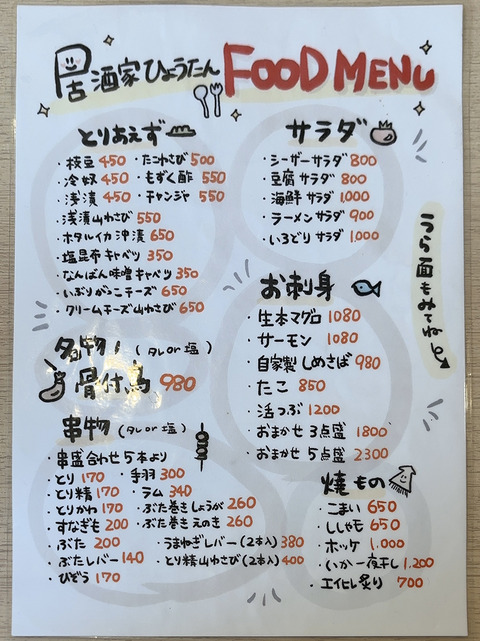 居酒家ひょうたん FOOD MENU
とりあえず
・枝豆 450 ・たこわさび 500
・冷奴 450 ・もずく酢 550
・浅漬 450 ・チャンジャ 550
・浅漬山わさび 550
・ホタルイカ沖漬 650
・塩昆布キャベツ 350
・なんばん味噌キャベツ 350
・いぶりがっこチーズ 650
・クリームチーズ山わさび 650
名物! (タレor塩)
骨付鳥 980
串物 (タレor塩)
・串盛合わせ5本より
・とり 170 ・手羽 300
・とり精 170 ・ラム 340
・とりかわ 170 ・ぶた巻きしょうが 260
・すなぎも 200 ・ぶた巻きえのき 260
・ぶた 200 ・うまねぎレバー(2本入) 380
・ぶたレバー 140 ・とり精山わさび(2本入) 400
・ひぞう 170
サラダ
・シーザーサラダ 800
・豆腐サラダ 800
・海鮮サラダ 1,000
・ラーメンサラダ 900
・いろどりサラダ 1,000
お刺身
・生本マグロ 1080
・サーモン 1080
・自家製しめさば 980
・たこ 850
・活つぶ 1200
・おまかせ3点盛 1800
・おまかせ5点盛 2300
焼もの
・こまい 650
・ししゃも 650
・ホッケ 1,000
・いか一夜干し 1,200
・エイヒレ炙り 700
うら面もみてね